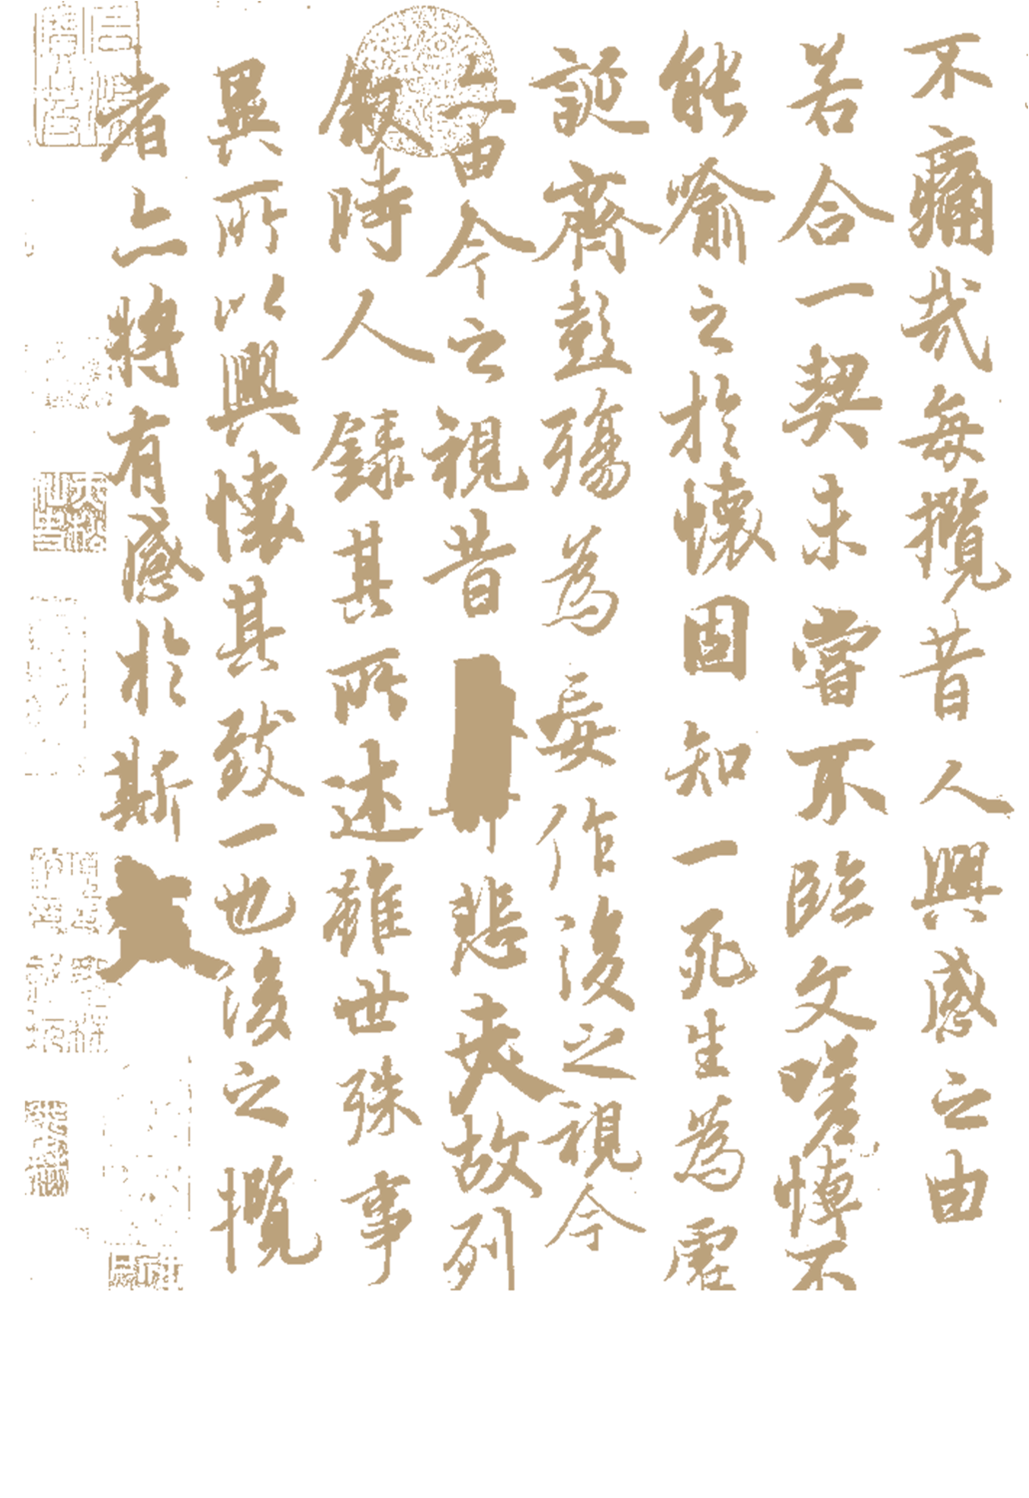 不痛哉每攬昔人興感之由
若合一契未嘗不臨文嗟悼不
能喻之於懷固知一死生為虛
誕齊彭殤為妄作後之視今
亦由今之視昔悲夫故列
敘時人錄其所述雖世殊事
異所以興懷其致一也後之攬
者亦將有感於斯